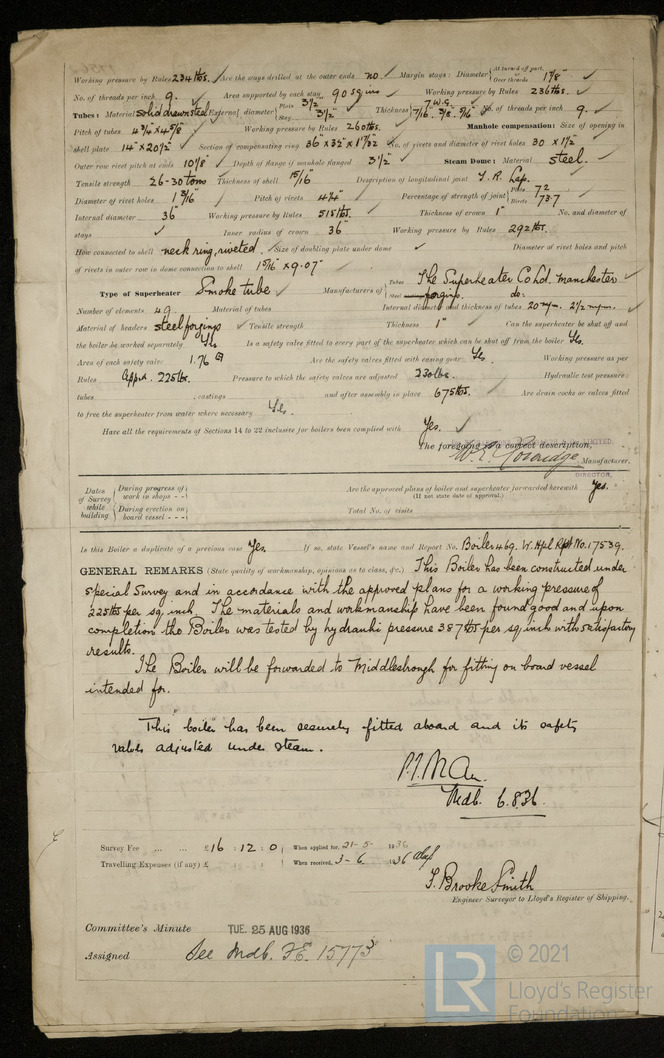 Working pressure by Rules 234 lbs. Are the stays drilled at the outer ends no Margin stays: Diameter { At turned off part, or Over threads 1 7/8"
No. of threads per inch 9. Area supported by each stay 90 sq ins Working pressure by Rules 236 lbs.
Tubes: Material solid drawn steel External diameter { Plain 3 1/2" Stay 3 1/2" Thickness { 7 W.G. 7/16" 3/8" 5/16" No. of threads per inch 9.
Pitch of tubes 4 3/4" x 4 5/8" Working pressure by Rules 260 lbs. Manhole compensation: Size of opening in
shell plate 14" x 20 1/2" Section of compensating ring 36" x 32" x 1 17/32 No. of rivets and diameter of rivet holes 30 x 1 1/2"
Outer row rivet pitch at ends 10 1/8" Depth of flange if manhole flanged 3 1/2" Steam Dome: Material steel.
Tensile strength 26-30 tons Thickness of shell 15/16" Description of longitudinal joint T. R. Lap.
Diameter of rivet holes 1 3/16" Pitch of rivets 4 1/4" Percentage of strength of joint { Plate 72 Rivets 73.7
Internal diameter 36" Working pressure by Rules 515 lbs. Thickness of crown 1" No. and diameter of
stays Inner radius of crown 36" Working pressure by Rules 292 lbs.
How connected to shell neck ring, riveted. Size of doubling plate under dome Diameter of rivet holes and pitch
of rivets in outer row in dome connection to shell 1 5/16" x 9.07"
Type of Superheater Smoke tube Manufacturers of { Tubes The Superheater Co Ld. Manchester
Steel forgings do.
Number of elements 49 Material of tubes Internal diameter and thickness of tubes 20 m/m. 2 1/2 m/m.
Material of headers steel forgings Tensile strength Thickness 1" Can the superheater be shut off and
the boiler be worked separately Yes Is a safety valve fitted to every part of the superheater which can be shut off from the boiler Yes.
Area of each safety valve 1.76 Are the safety valves fitted with easing gear Yes Working pressure as per
Rules Appd. 225 lbs. Pressure to which the safety valves are adjusted 230 lbs. Hydraulic test pressure:
tubes , castings and after assembly in place 675 lbs. Are drain cocks or valves fitted
to free the superheater from water where necessary Yes.
Have all the requirements of Sections 14 to 22 inclusive for boilers been complied with Yes.
LIMITED.
The foregoing is a correct description,
Manufacturer.
DIRECTOR.
Dates of Survey while building { During progress of work in shops - - Are the approved plans of boiler and superheater forwarded herewith Yes.
(If not state date of approval.)
During erection on board vessel - - - Total No. of visits
Is this Boiler a duplicate of a previous case Yes. If so, state Vessel's name and Report No. Boiler 469. W. Hpl Rpt No. 17539.
GENERAL REMARKS (State quality of workmanship, opinions as to class, &c.) This Boiler has been constructed under
special Survey and in accordance with the approved plans for a working pressure of
225 lbs per sq. inch. The materials and workmanship have been found good and upon
completion the Boiler was tested by hydraulic pressure 387 lbs per sq inch with satisfactory
results.
The Boiler will be forwarded to Middlesbrough for fitting on board vessel
intended for.
This boiler has been securely fitted aboard and its safety
valves adjusted under steam.
Mdb. 6.8.36.
Survey Fee ... ... £16 : 12 : 0 When applied for, 21-5- 1936
Travelling Expenses (if any) £ : : When received, 3-6 1936
F. Brooke Smith
Engineer Surveyor to Lloyd's Register of Shipping.
Committee's Minute TUE. 25 AUG 1936
Assigned See Mdb. F.E. 15773
LR
© 2021
Lloyd's Register
Foundation